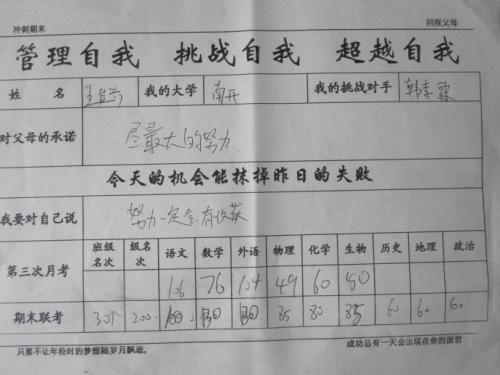 冲刺期末 回报父母
管理自我 挑战自我 超越自我
姓 名 我的大学 南开 我的挑战对手
对父母的承诺 尽最大的努力
今天的机会能抹掉昨日的失败
我要对自己说 努力一定会有收获
班级名次 级名次 语文 数学 外语 物理 化学 生物 历史 地理 政治
第三次月考 106 76 104 49 60 50
期末联考 200 130 85 80 85 60 60 60
只要不让年轻时的梦想随岁月飘逝。 成功总有一天会出现在你的面前